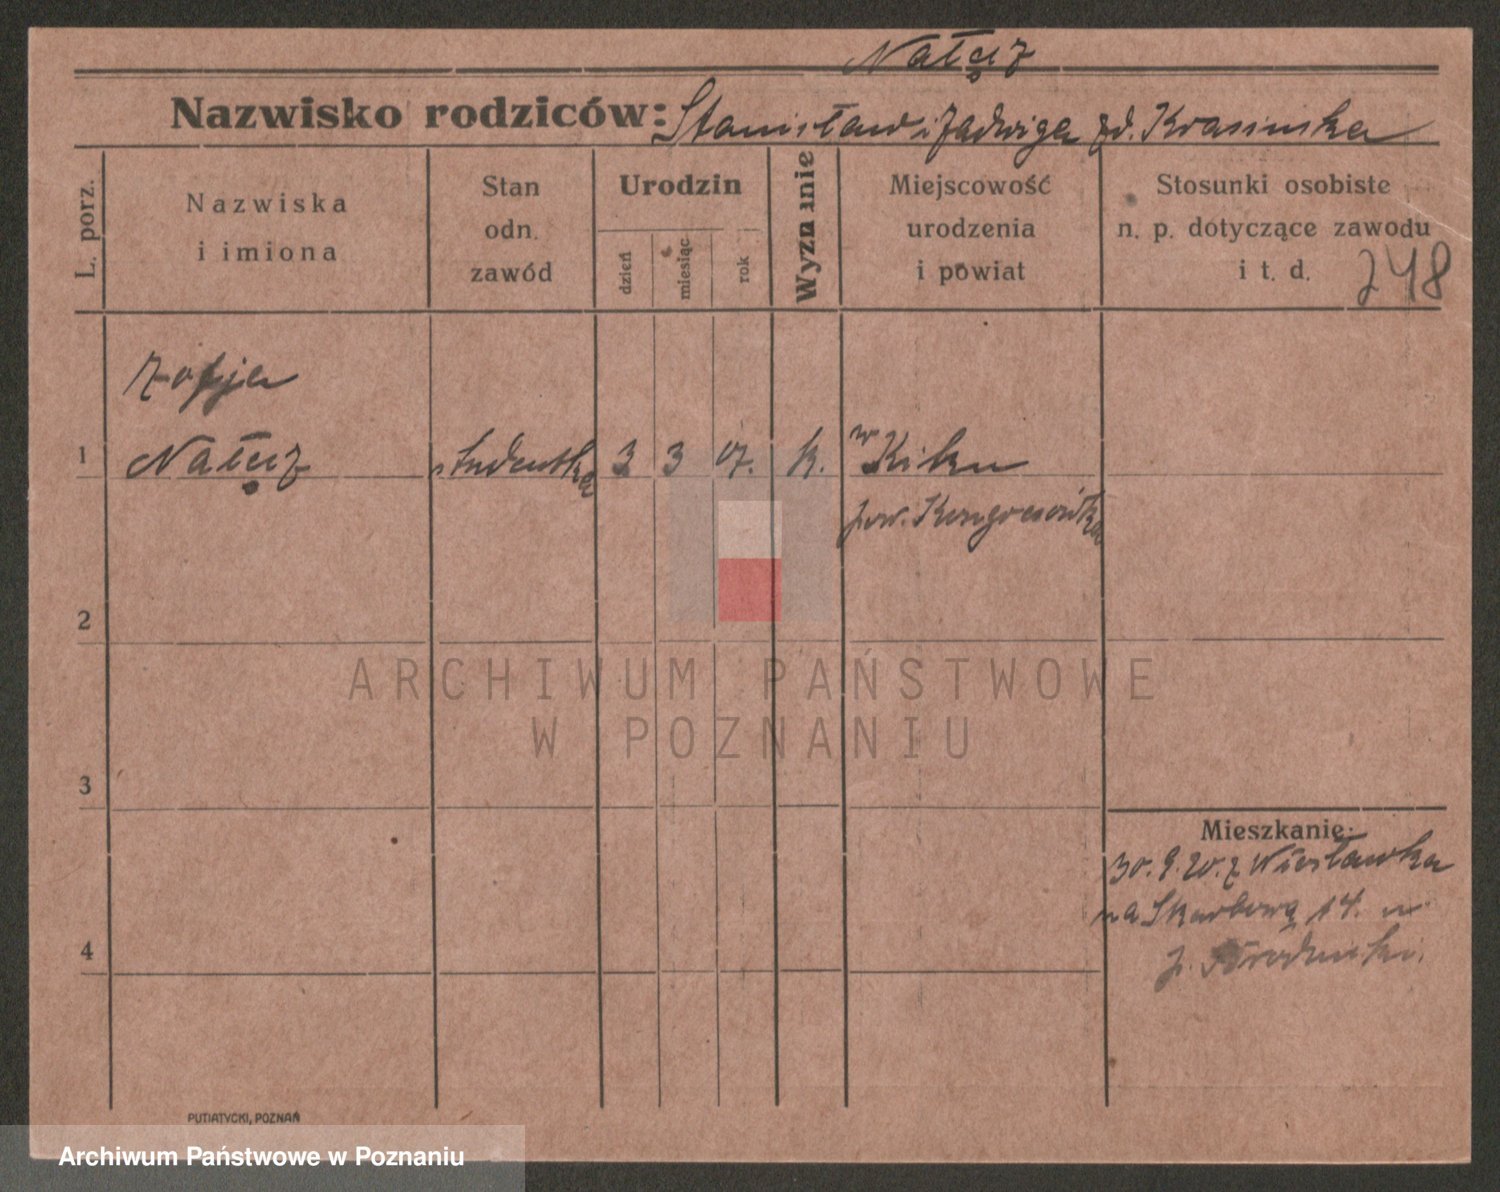 Nałęcz
Nazwisko rodziców: Stanisław i Jadwiga zd. Krasińska
L. porz.
Nazwiska
i imiona
Stan
odn.
zawód
Urodzin
dzień
miesiąc
rok
Wyznanie
Miejscowość
urodzenia
i powiat
Stosunki osobiste
n. p. dotyczące zawodu
i t. d.
248
Zofja
1 Nałęcz studentka 3 3 07. k. w Kiku
pow. Kongresówka
2
ARCHIWUM PAŃSTWOWE
W POZNANIU
3
Mieszkanie:
30. 9. 20. z Wiesławka
na Skarbową 14.
4
PUTIATYCKI, POZNAŃ
Archiwum Państwowe w Poznaniu